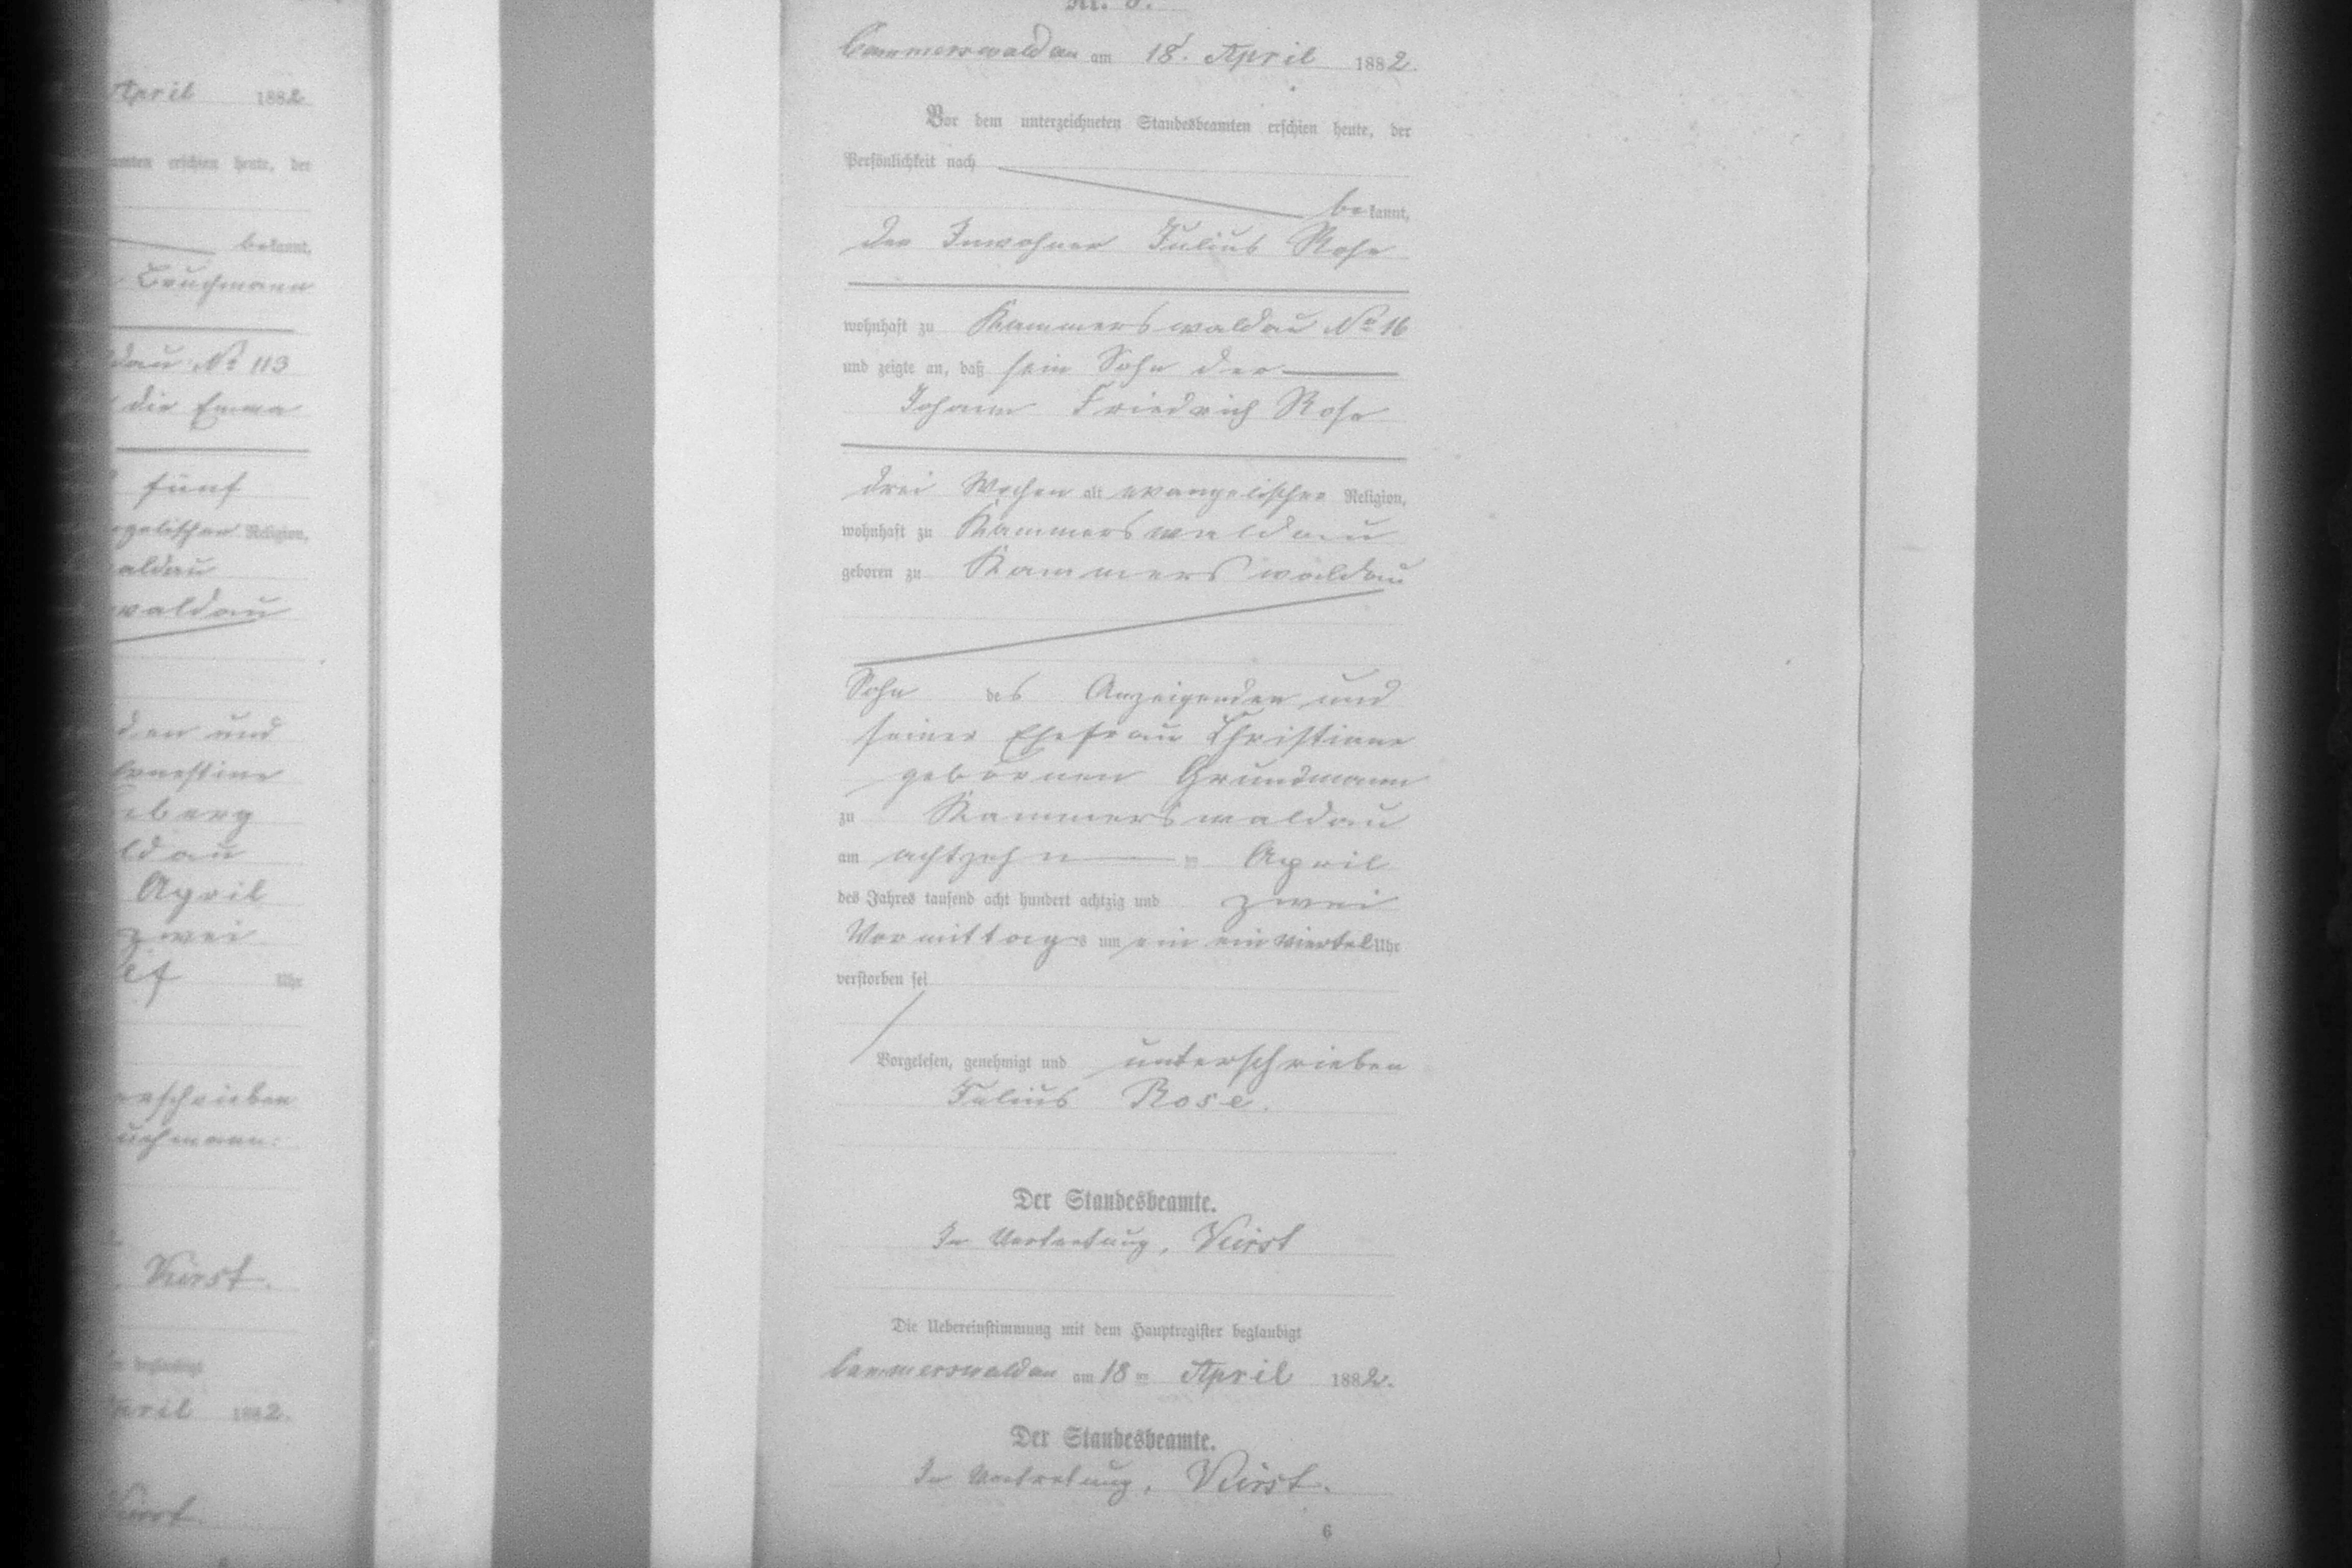 April 1882
amten erschien heute, der
bekannt,
Bruchmann
dau No 113
die Emma
fünf
gelischer Religion,
aldau
waldau
den und
Ernestine
berg
ldau
April
zwei
Uhr
erschrieben
uchmann.
Kürst.
beglaubigt
April 1882.
Kürst.
Cammerswaldau am 18. April 1882.
Vor dem unterzeichneten Standesbeamten erschien heute, der
Persönlichkeit nach
bekannt,
der Inwohner Julius Rose
wohnhaft zu Kammerswaldau No 16
und zeigte an, daß sein Sohn der
Johann Friedrich Rose
drei Wochen alt evangelischer Religion,
wohnhaft zu Kammerswaldau
geboren zu Kammerswaldau
Sohn des Anzeigenden und
seiner Ehefrau Christiane
gebornen Grundmann
zu Kammerswaldau
am achtzehn ten April
des Jahres tausend acht hundert achtzig und zwei
Vormittags um ein ein viertel Uhr
verstorben sei
Vorgelesen, genehmigt und unterschrieben
Julius Rose.
Der Standesbeamte.
In Vertretung, Kürst
Die Uebereinstimmung mit dem Hauptregister beglaubigt
Cammerswaldau am 18 ten April 1882.
Der Standesbeamte.
In Vertretung, Kürst.
6